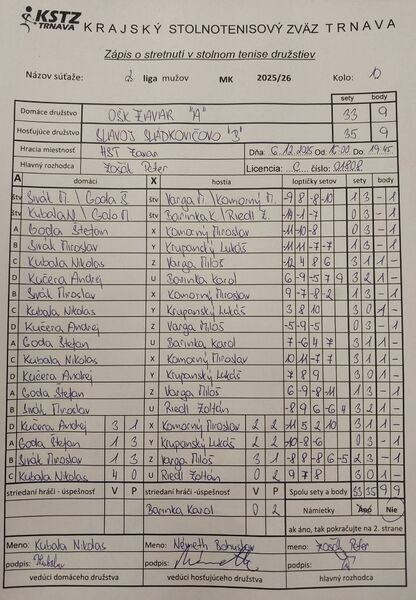 KSTZ TRNAVA KRAJSKÝ STOLNOTENISOVÝ ZVÄZ TRNAVA
Zápis o stretnutí v stolnom tenise družstiev
Názov súťaže: 2 liga mužov MK 2025/26 Kolo: 10
sety body
Domáce družstvo OŠK ZAVAR "A" 33 9
Hosťujúce družstvo SLAVOJ SLÁDKOVIČOVO "B" 35 9
Hracia miestnosť HST Zavar Dňa: 6.12.2025 Od: 15:00 Do: 19:45
Hlavný rozhodca Zošák Peter Licencia: C číslo: 01808
A domáci X hostia loptičky setov sety body
štv Sivák M. / Goda Š štv Varga M / Komorný M. -9 8 -8 -10 1 3 - 1
štv Kubala N / Galo M štv Barinka K / Riedl Z. -14 -1 -7 0 3 - 1
A Goda Štefan X Komorný Miroslav -11 -10 -8 0 3 - 1
B Sivák Miroslav Y Krupanský Lukáš -11 11 -7 -7 1 3 - 1
C Kubala Nikolas Z Varga Miloš -12 4 8 6 3 1 1 -
D Kučera Andrej U Barinka Karol 6 -9 -5 7 9 3 2 1 -
B Sivák Miroslav X Komorný Miroslav 9 -7 -8 -2 1 3 - 1
C Kubala Nikolas Y Krupanský Lukáš 3 8 10 3 0 1 -
D Kučera Andrej Z Varga Miloš -5 -9 -5 0 3 - 1
A Goda Štefan U Barinka Karol 7 -6 4 7 3 1 1 -
C Kubala Nikolas X Komorný Miroslav 10 11 -7 7 3 1 1 -
D Kučera Andrej Y Krupanský Lukáš 7 8 9 3 0 1 -
A Goda Štefan Z Varga Miloš 6 -9 -8 -11 1 3 - 1
B Sivák Miroslav U Riedl Zoltán -8 9 6 -6 4 3 2 1 -
D Kučera Andrej 3 1 X Komorný Miroslav 2 2 -11 5 2 10 3 1 1 -
A Goda Štefan 1 3 Y Krupanský Lukáš 2 2 -10 -8 -6 0 3 - 1
B Sivák Miroslav 1 3 Z Varga Miloš 3 1 -8 8 -8 6 -5 2 3 - 1
C Kubala Nikolas 4 0 U Riedl Zoltán 0 2 9 7 8 3 0 1 -
striedaní hráči - úspešnosť V P striedaní hráči - úspešnosť V P Spolu sety a body 33 35 9 9
Barinka Karol 0 2 Námietky Áno Nie
ak áno, tak pokračujte na 2. strane
Meno: Kubala Nikolas Meno: Németh Bohuslav meno: Zošák Peter
podpis: podpis: podpis:
vedúci domáceho družstva vedúci hosťujúceho družstva hlavný rozhodca